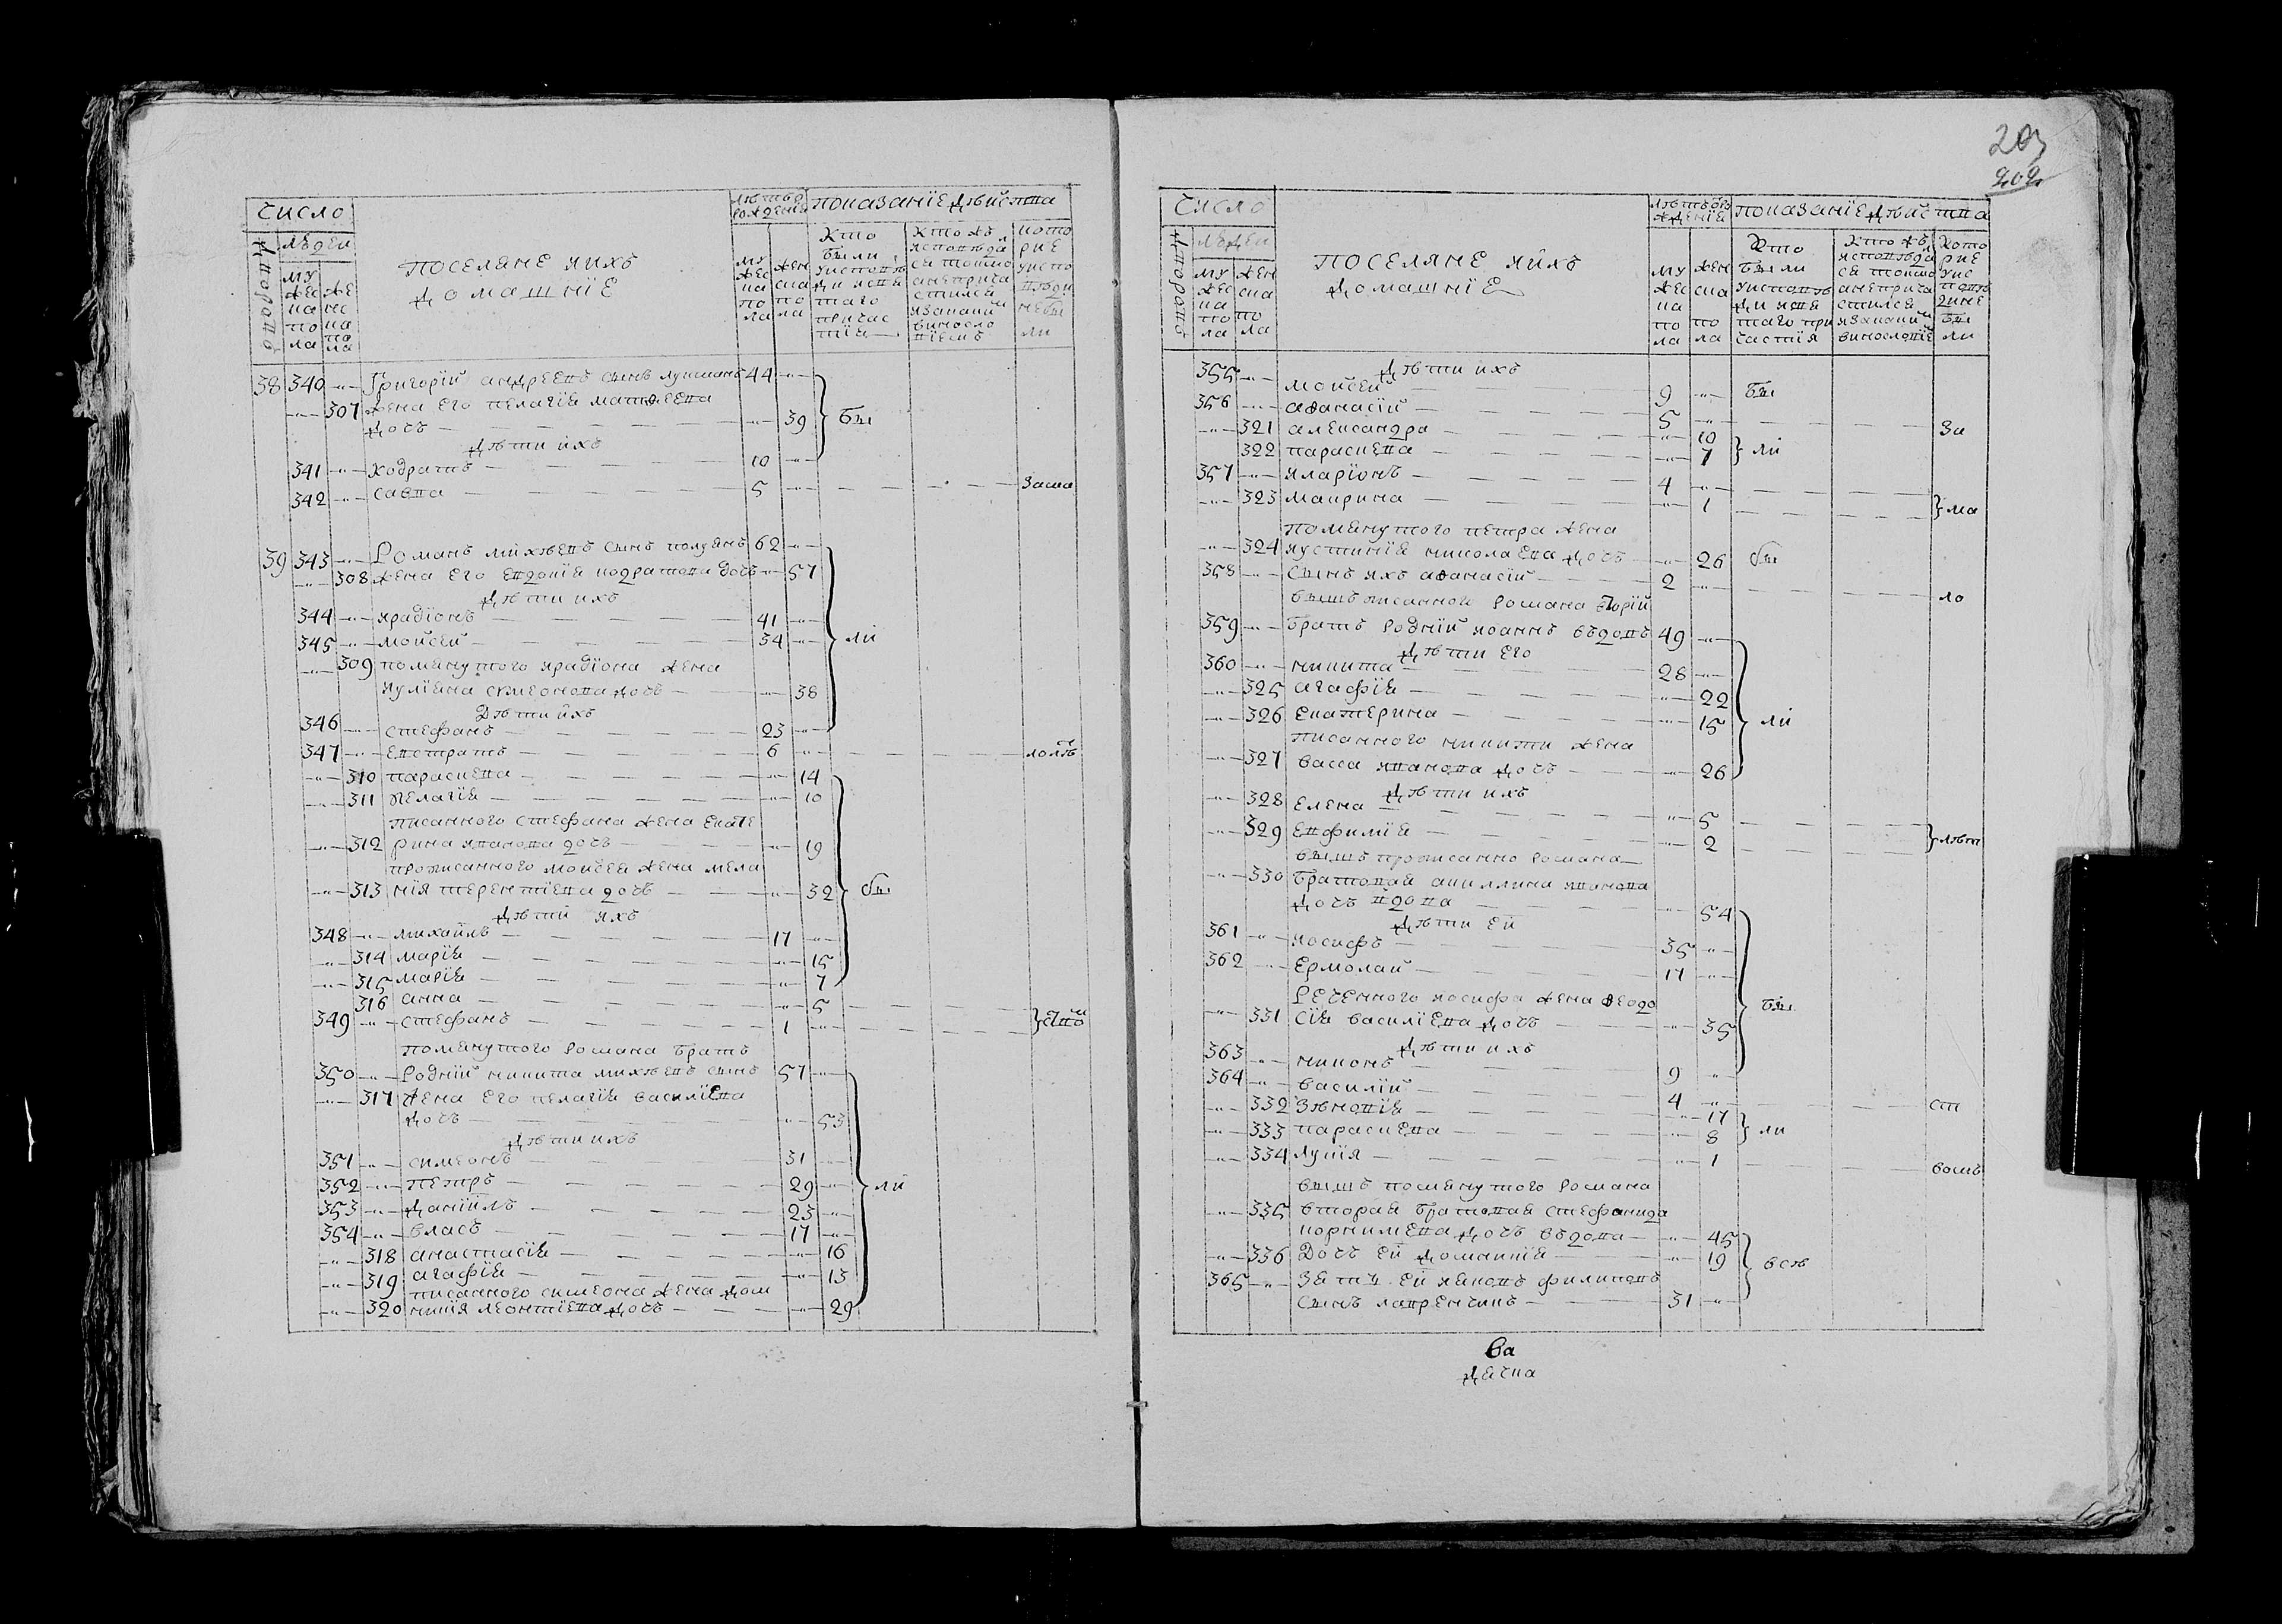 число
дворовъ
людей
мужеска пола
женска пола
поселяне и ихъ
домашніе
лѣта от рожденія
мужеска пола
женска пола
показаніе действа
Кто были у исповѣди и святаго причастія
Кто же исповѣдался токмо а не причастился
Которие у исповѣди не были
38 340 -"- Григорій андреевъ сынъ 44 -"-
-"- 307 жена его пелагія матѳеева
дочь -"- 39 бы
дѣти ихъ
341 -"- кодратъ 10 -"-
342 -"- савва 5 -"- зама
39 343 -"- Романъ михѣевъ сынъ 62 -"-
-"- 308 жена его евдокія кодратова дочь -"- 57
дѣти ихъ
344 -"- ирадіонъ 41 -"-
345 -"- мойсей 34 -"- ли
-"- 309 помянутого ирадіона жена
иуліяна симеонова дочь -"- 38
Дѣти ихъ
346 -"- стефанъ 23 -"-
347 -"- евстратъ 6 -"- лолѣ
-"- 310 параскева -"- 14
-"- 311 пелагія -"- 10
писанного стефана жена екате
-"- 312 рина иванова дочь -"- 19
прописанного мойсея жена мела
-"- 313 нія терентіева дочь -"- 32 бы
дѣти ихъ
348 -"- михаилъ 17 -"-
-"- 314 марія -"- 15
-"- 315 марія -"- 7
316 анна -"- 5
349 -"- стефанъ 1 -"-
помянутого романа братъ
350 -"- родній никита михѣевъ сынъ 57 -"-
-"- 317 жена его пелагія василіева
дочь -"- 53
дѣти ихъ
351 -"- симеонъ 31 -"-
352 -"- петръ 29 -"- ли
353 -"- даніилъ 23 -"-
354 -"- власъ 17 -"-
-"- 318 анастасія -"- 16
-"- 319 агафія -"- 13
писанного симеона жена дом
-"- 320 никія леонтіева дочь -"- 29
203
202
число
дворовъ
людей
мужеска пола
женска пола
поселяне и ихъ
домашніе
лѣта от рожденія
мужеска пола
женска пола
показаніе дѣйства
Кто были у исповѣди и святаго причастія
Кто же исповѣдался токмо а не причастился
Которие у исповѣди не были
355 -"- дѣти ихъ
мойсей 9 -"- бы
356 -"- аѳанасій 5 -"- за
-"- 321 александра -"- 10
322 параскева -"- 7 ли
357 -"- иларіонъ 4 -"-
-"- 323 маирина -"- 1 ма
помянутого петра жена
-"- 324 иустинія николаева дочь -"- 26 бы
358 -"- сынъ ихъ аѳанасій 2 -"- ло
вышъ писанного романа
359 -"- братъ родній иоаннъ вдовъ 49 -"-
дѣти его
360 -"- никита 28 -"-
-"- 325 агафія -"- 22
-"- 326 екатерина -"- 15 ли
писанного никити жена
-"- 327 васса иванова дочь -"- 26
дѣти ихъ
-"- 328 елена -"- 5
-"- 329 евфимія -"- 2 лѣт
вышъ прописанно романа
-"- 330 братовая акиллина иванова
дочь вдова -"- 54
дѣти ей
361 -"- иосифъ 35 -"-
362 -"- ермолай 17 -"-
реченного иосифа жена ѳеодо
-"- 331 сія василіева дочь -"- 35 бы
дѣти ихъ
363 -"- никонъ 9 -"-
364 -"- василій 4 -"- ст
-"- 332 зѣновія -"- 17
-"- 333 параскева -"- 8 ли
-"- 334 лукія -"- 1 вомъ
вышъ помянутого романа
-"- 335 вторая братовая стефанида
корнилiева дочь вдова -"- 45
-"- 336 Дочь ей домникія -"- 19 всѣ
365 -"- зять ей яковъ филиповъ
сынъ лавренчикъ 31 -"-
ва
дячка